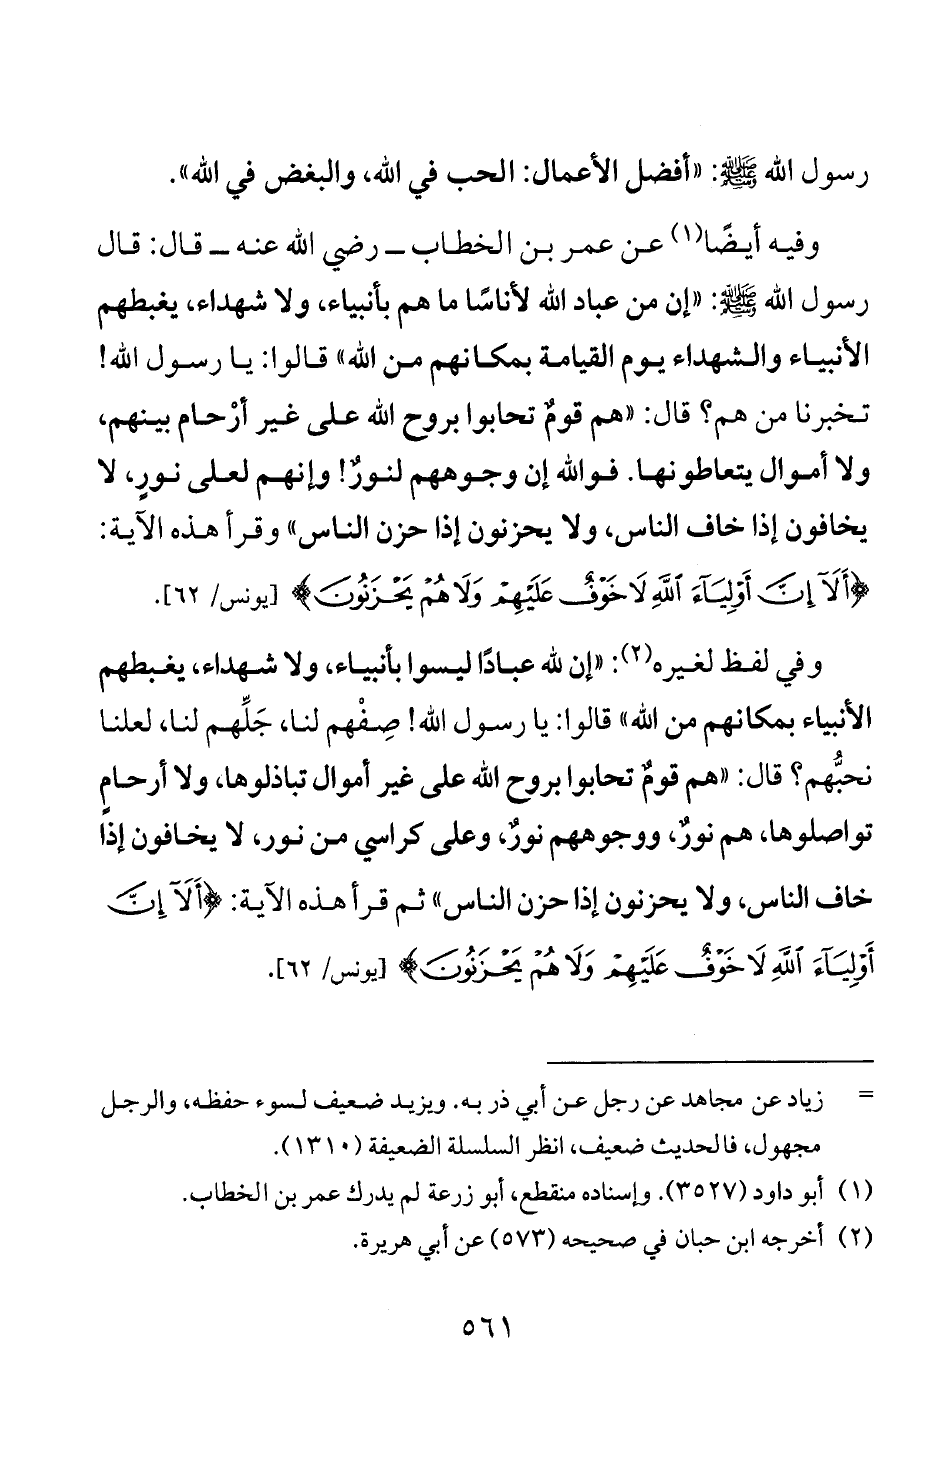 رسول الله ﷺ: «أفضل الأعمال: الحب في الله، والبغض في الله».
وفيه أيضًا(١) عن عمر بن الخطاب ـ رضي الله عنه ـ قال: قال
رسول الله ﷺ: «إن من عباد الله لأناسًا ما هم بأنبياء، ولا شهداء، يغبطهم
الأنبياء والشهداء يوم القيامة بمكانهم من الله» قالوا: يا رسول الله!
تخبرنا من هم؟ قال: «هم قومٌ تحابوا بروح الله على غير أرْحام بينهم،
ولا أموال يتعاطونها. فوالله إن وجوههم لنورٌ! وإنهم لعلى نورٍ، لا
يخافون إذا خاف الناس، ولا يحزنون إذا حزن الناس» وقرأ هذه الآية:
﴿أَلَآ إِنَّ أَوْلِيَآءَ ٱللَّهِ لَا خَوْفٌ عَلَيْهِمْ وَلَا هُمْ يَحْزَنُونَ﴾ [يونس/ ٦٢].
وفي لفظ لغيره(٢): «إن لله عبادًا ليسوا بأنبياء، ولا شهداء، يغبطهم
الأنبياء بمكانهم من الله» قالوا: يا رسول الله! صِفْهم لنا، جَلِّهم لنا، لعلنا
نحبُّهم؟ قال: «هم قومٌ تحابوا بروح الله على غير أموال تباذلوها، ولا أرحامٍ
تواصلوها، هم نورٌ، ووجوههم نورٌ، وعلى كراسي من نور، لا يخافون إذا
خاف الناس، ولا يحزنون إذا حزن الناس» ثم قرأ هذه الآية: ﴿أَلَآ إِنَّ
أَوْلِيَآءَ ٱللَّهِ لَا خَوْفٌ عَلَيْهِمْ وَلَا هُمْ يَحْزَنُونَ﴾ [يونس/ ٦٢].
= زياد عن مجاهد عن رجل عن أبي ذر به. ويزيد ضعيف لسوء حفظه، والرجل
مجهول، فالحديث ضعيف، انظر السلسلة الضعيفة (١٣١٠).
(١) أبو داود (٣٥٢٧). وإسناده منقطع، أبو زرعة لم يدرك عمر بن الخطاب.
(٢) أخرجه ابن حبان في صحيحه (٥٧٣) عن أبي هريرة.
٥٦١